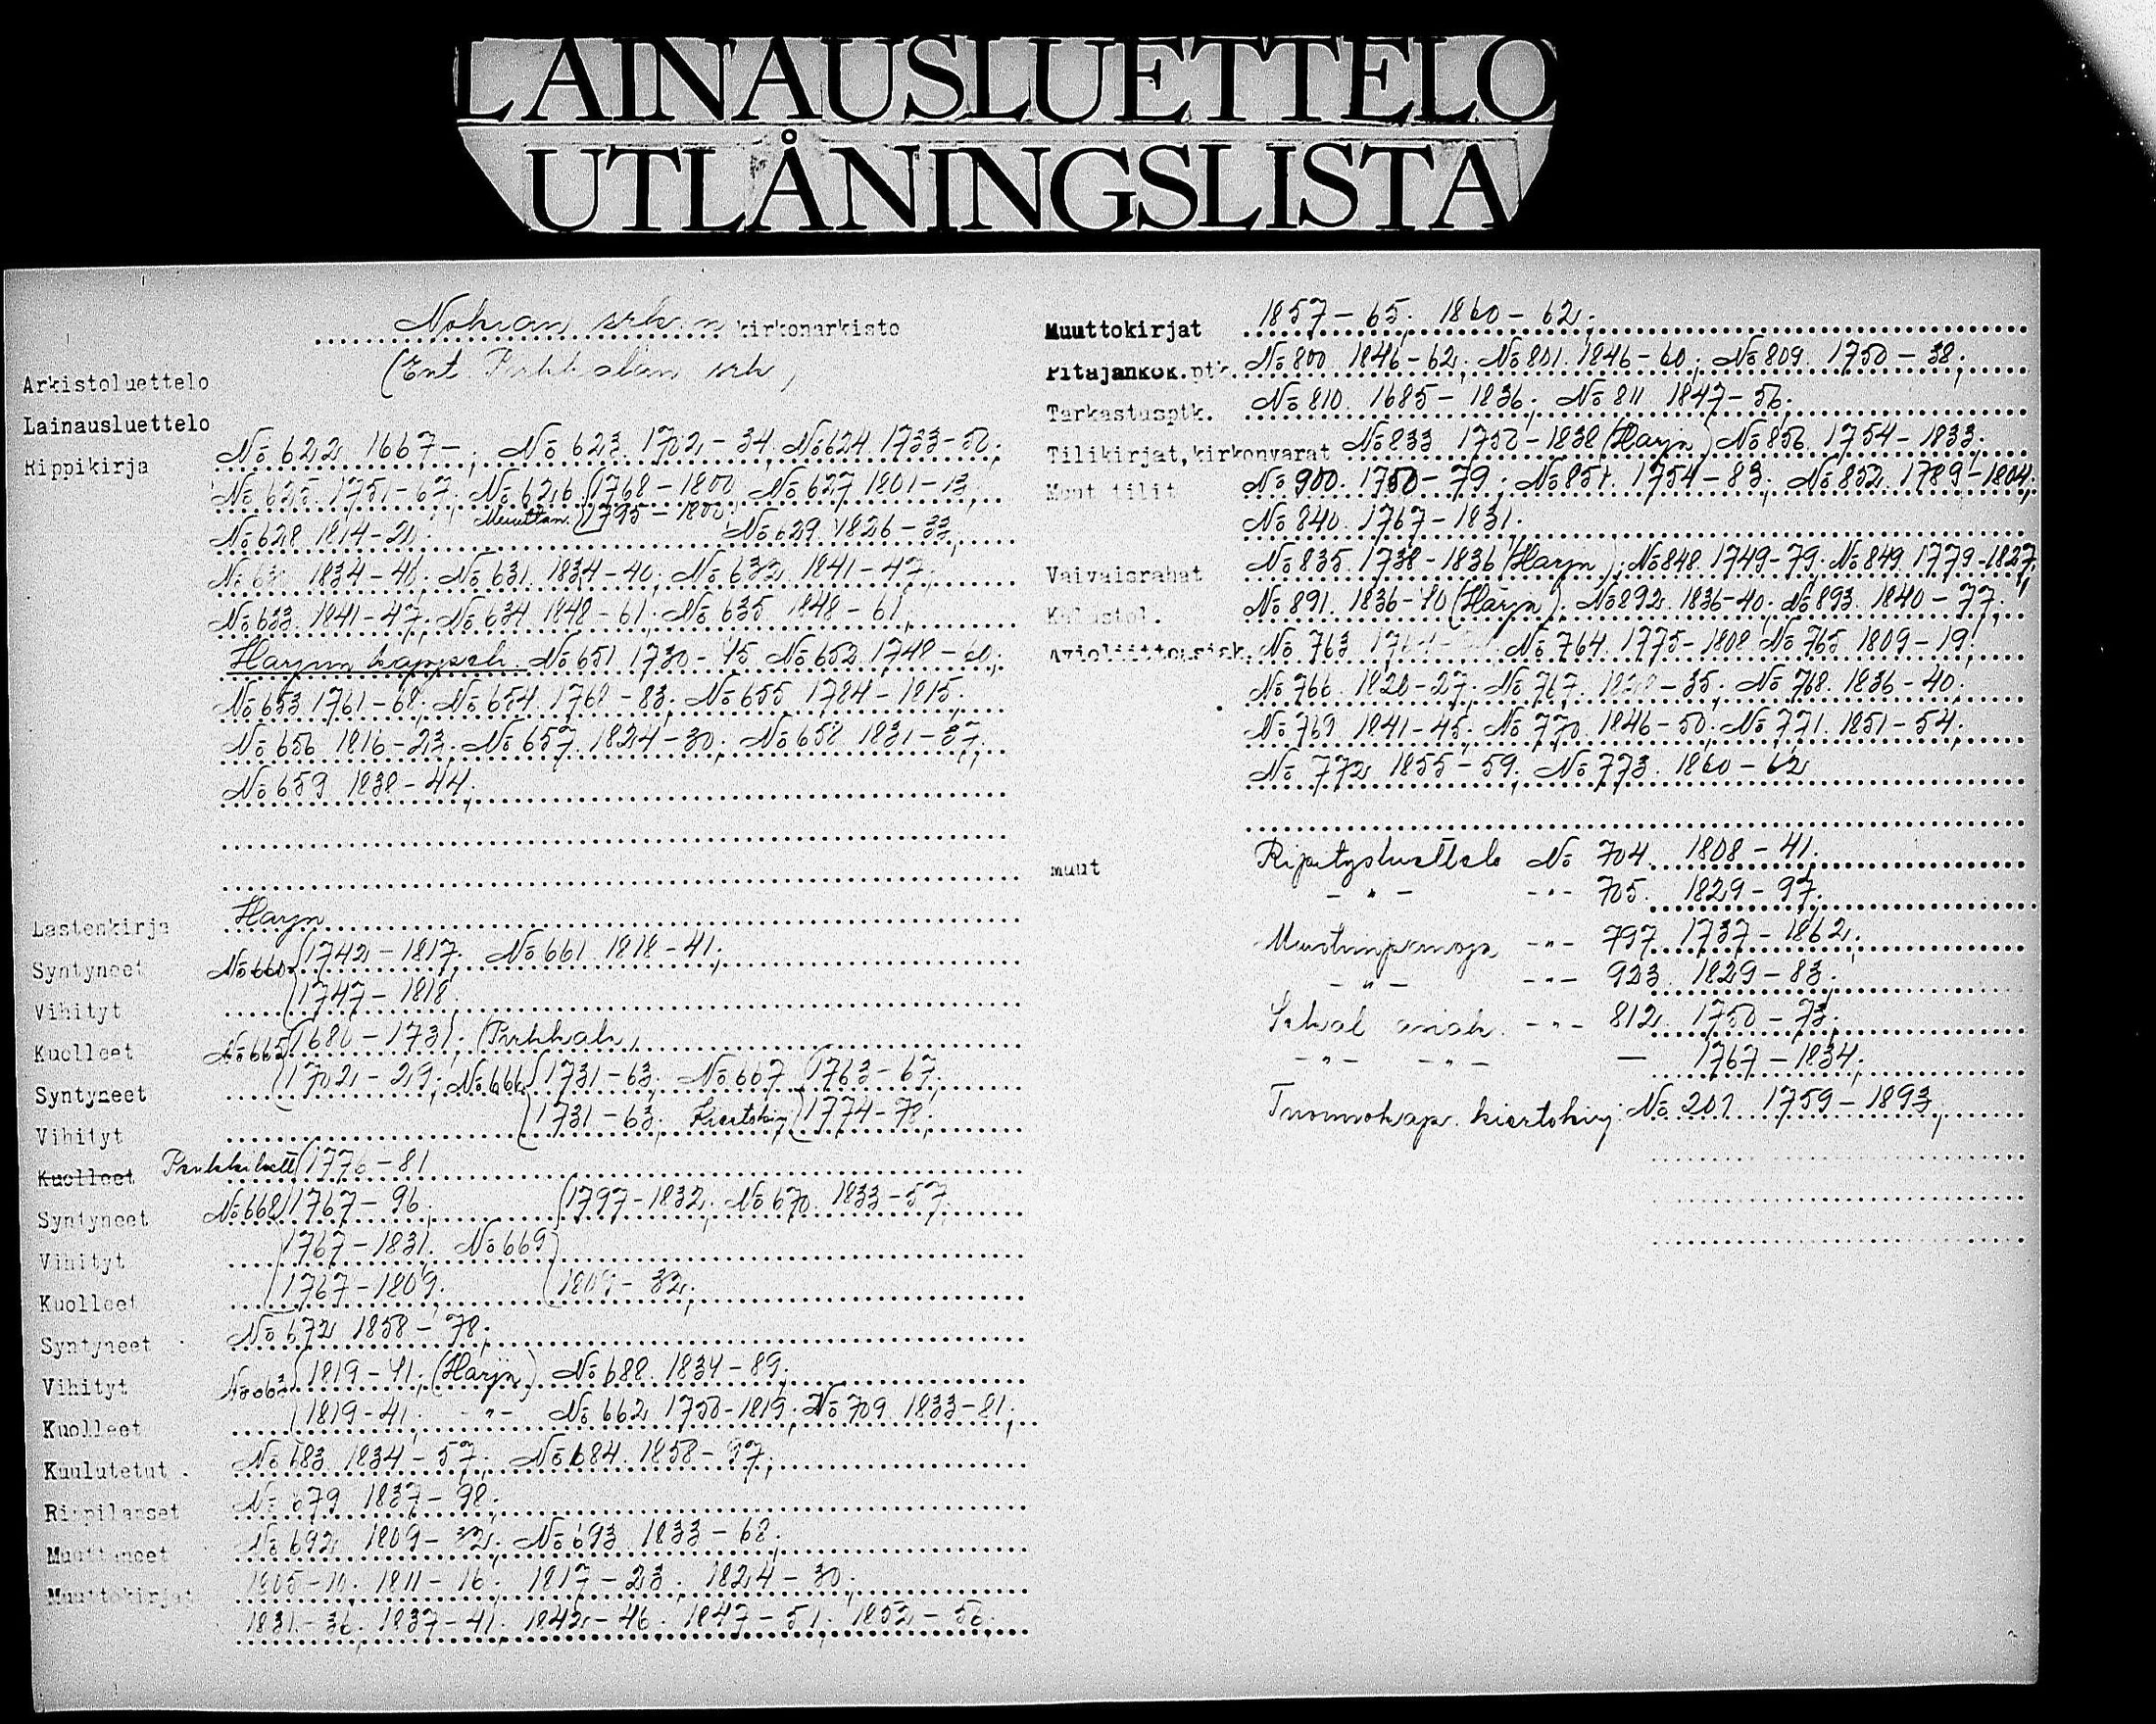 LAINAUSLUETTELO
UTLÅNINGSLISTA
Nokian srk:n kirkonarkisto
(Ent Pirkkalan srk)
Arkistoluettelo
Lainausluettelo
Rippikirja No 622 1667- ; No 623. 1702-34; No 624. 1733-50;
No 625. 1751-67; No 626. 1768-1800; No 627 1801-13;
No 628 1814-21; Muuttan. 1795-1800; No 629. 1826-33;
No 630 1834-40; No 631. 1834-40; No 632 1841-47;
No 633. 1841-47; No 634 1848-61; No 635 1848-61;
Harjun kappseli. No 651 1730-45 No 652 1748-60;
No 653 1761-68; No 654. 1768-83; No 655 1784-1815;
No 656 1816-23; No 657. 1824-30; No 658 1831-37;
No 659 1838-44;
Lastenkirja Harjn
Syntyneet No 660 1742-1817; No 661 1818-41;
Vihityt 1747-1818
Kuolleet No 665 1680-1731. (Pirkkala)
Syntyneet 1702-29; No 666 1731-63; No 667 1763-67;
Vihityt 1731-63; Kiertokirj 1774-78;
Kuolleet 1776-81
Syntyneet No 668 1767-96; 1797-1832; No 670. 1833-57;
Vihityt 1767-1831. No 669
Kuolleet 1767-1809. 1809-32;
Syntyneet No 672 1858-78;
Vihityt 1819-41; (Harjn) No 688. 1834-89;
Kuolleet 1819-41; -"- No 662 1750-1819; No 709 1833-81;
Kuulutetut No 683. 1834-57; No 684. 1858-97;
Rippilapset No 679 1837-98;
Muuttaneet No 692 1809-32; No 693 1833-68;
Muuttokirjat 1805-10; 1811-16; 1817-23; 1824-30;
1831-36; 1837-41; 1842-46; 1847-51; 1852-56;
Muuttokirjat 1857-65; 1860-62;
Pitäjänkok.ptk. No 800 1846-62; No 801. 1846-60; No 809. 1750-38;
Tarkastusptk. No 810. 1685-1836; No 811 1847-56;
Tilikirjat, kirkonvarat No 833 1750-1838 (Harjn) No 856. 1754-1833;
Muut tilit No 900. 1750-79; No 851. 1754-83; No 852. 1789-1804;
No 840. 1767-1831.
Vaivaisrahat No 835. 1738-1836 (Harjn); No 848 1749-79; No 849 1779-1827;
No 891. 1836-40 (Harjn); No 892. 1836-40; No 893. 1840-77;
Avioliittoasiak. No 763 No 764. 1775-1808 No 765 1809-19;
No 766. 1820-27; No 767. 1828-35; No 768. 1836-40;
No 769 1841-45; No 770. 1846-50; No 771. 1851-54;
No 772 1855-59; No 773. 1860-62
muut Ripitysluettelo No 704. 1808-41.
-"- -"- 705. 1829-97.
-"- 797 1737-1862;
-"- -"- 923 1829-83.
Sekal asiak. -"- 812. 1750-73;
-"- -"- — 1767-1834;
Tuomiokap. kiertokirj: No 201. 1759-1893;